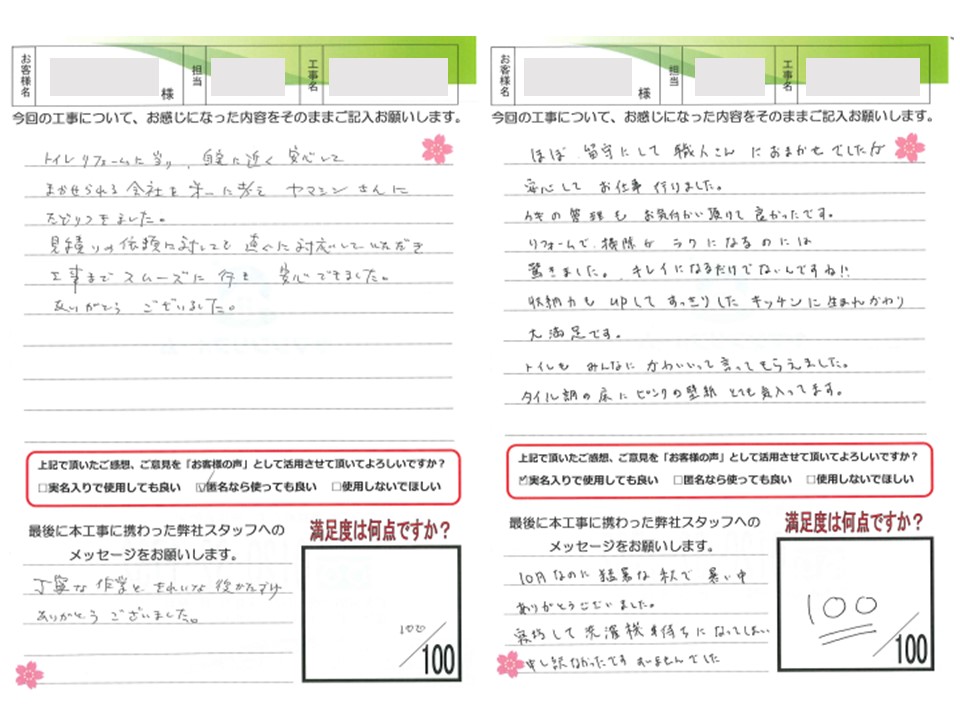 お客様名
様
担当
工事名
今回の工事について、お感じになった内容をそのままご記入お願いします。
トイレリフォームに当り、自宅に近く 安心して
まかせられる会社を第一に考え ヤマシンさんに
たどりつきました。
見積りの依頼に対しても速くに対応していただき
工事までスムーズに行き 安心できました。
ありがとう ございました。
上記で頂いたご感想、ご意見を「お客様の声」として活用させて頂いてよろしいですか？
□実名入りで使用しても良い ☑匿名なら使っても良い □使用しないでほしい
最後に本工事に携わった弊社スタッフへの
メッセージをお願いします。
丁寧な作業と きれいな 後かたずけ
ありがとう ございました。
満足度は何点ですか？
100／100
お客様名
様
担当
工事名
今回の工事について、お感じになった内容をそのままご記入お願いします。
ほぼ 留守にして 職人さん におまかせでしたが
安心して お仕事 行けました。
カギの管理も お気付かい頂けて良かったです。
リフォームで、掃除が ラクになるのには
驚きました。キレイになるだけでないんですね!!
収納力も UPして すっきりした キッチンに生まれかわり
大満足です。
トイレも みんなに かわいいって言ってもらえました。
タイル調の床に ピンクの壁紙 とても気入ってます。
上記で頂いたご感想、ご意見を「お客様の声」として活用させて頂いてよろしいですか？
☑実名入りで使用しても良い □匿名なら使っても良い □使用しないでほしい
最後に本工事に携わった弊社スタッフへの
メッセージをお願いします。
10月なのに 猛暑な 秋で 暑い中
ありがとうございました。
寝坊して 洗濯機 待ちに なってしまい
申し訳なかったです すいませんでした
満足度は何点ですか？
100／100